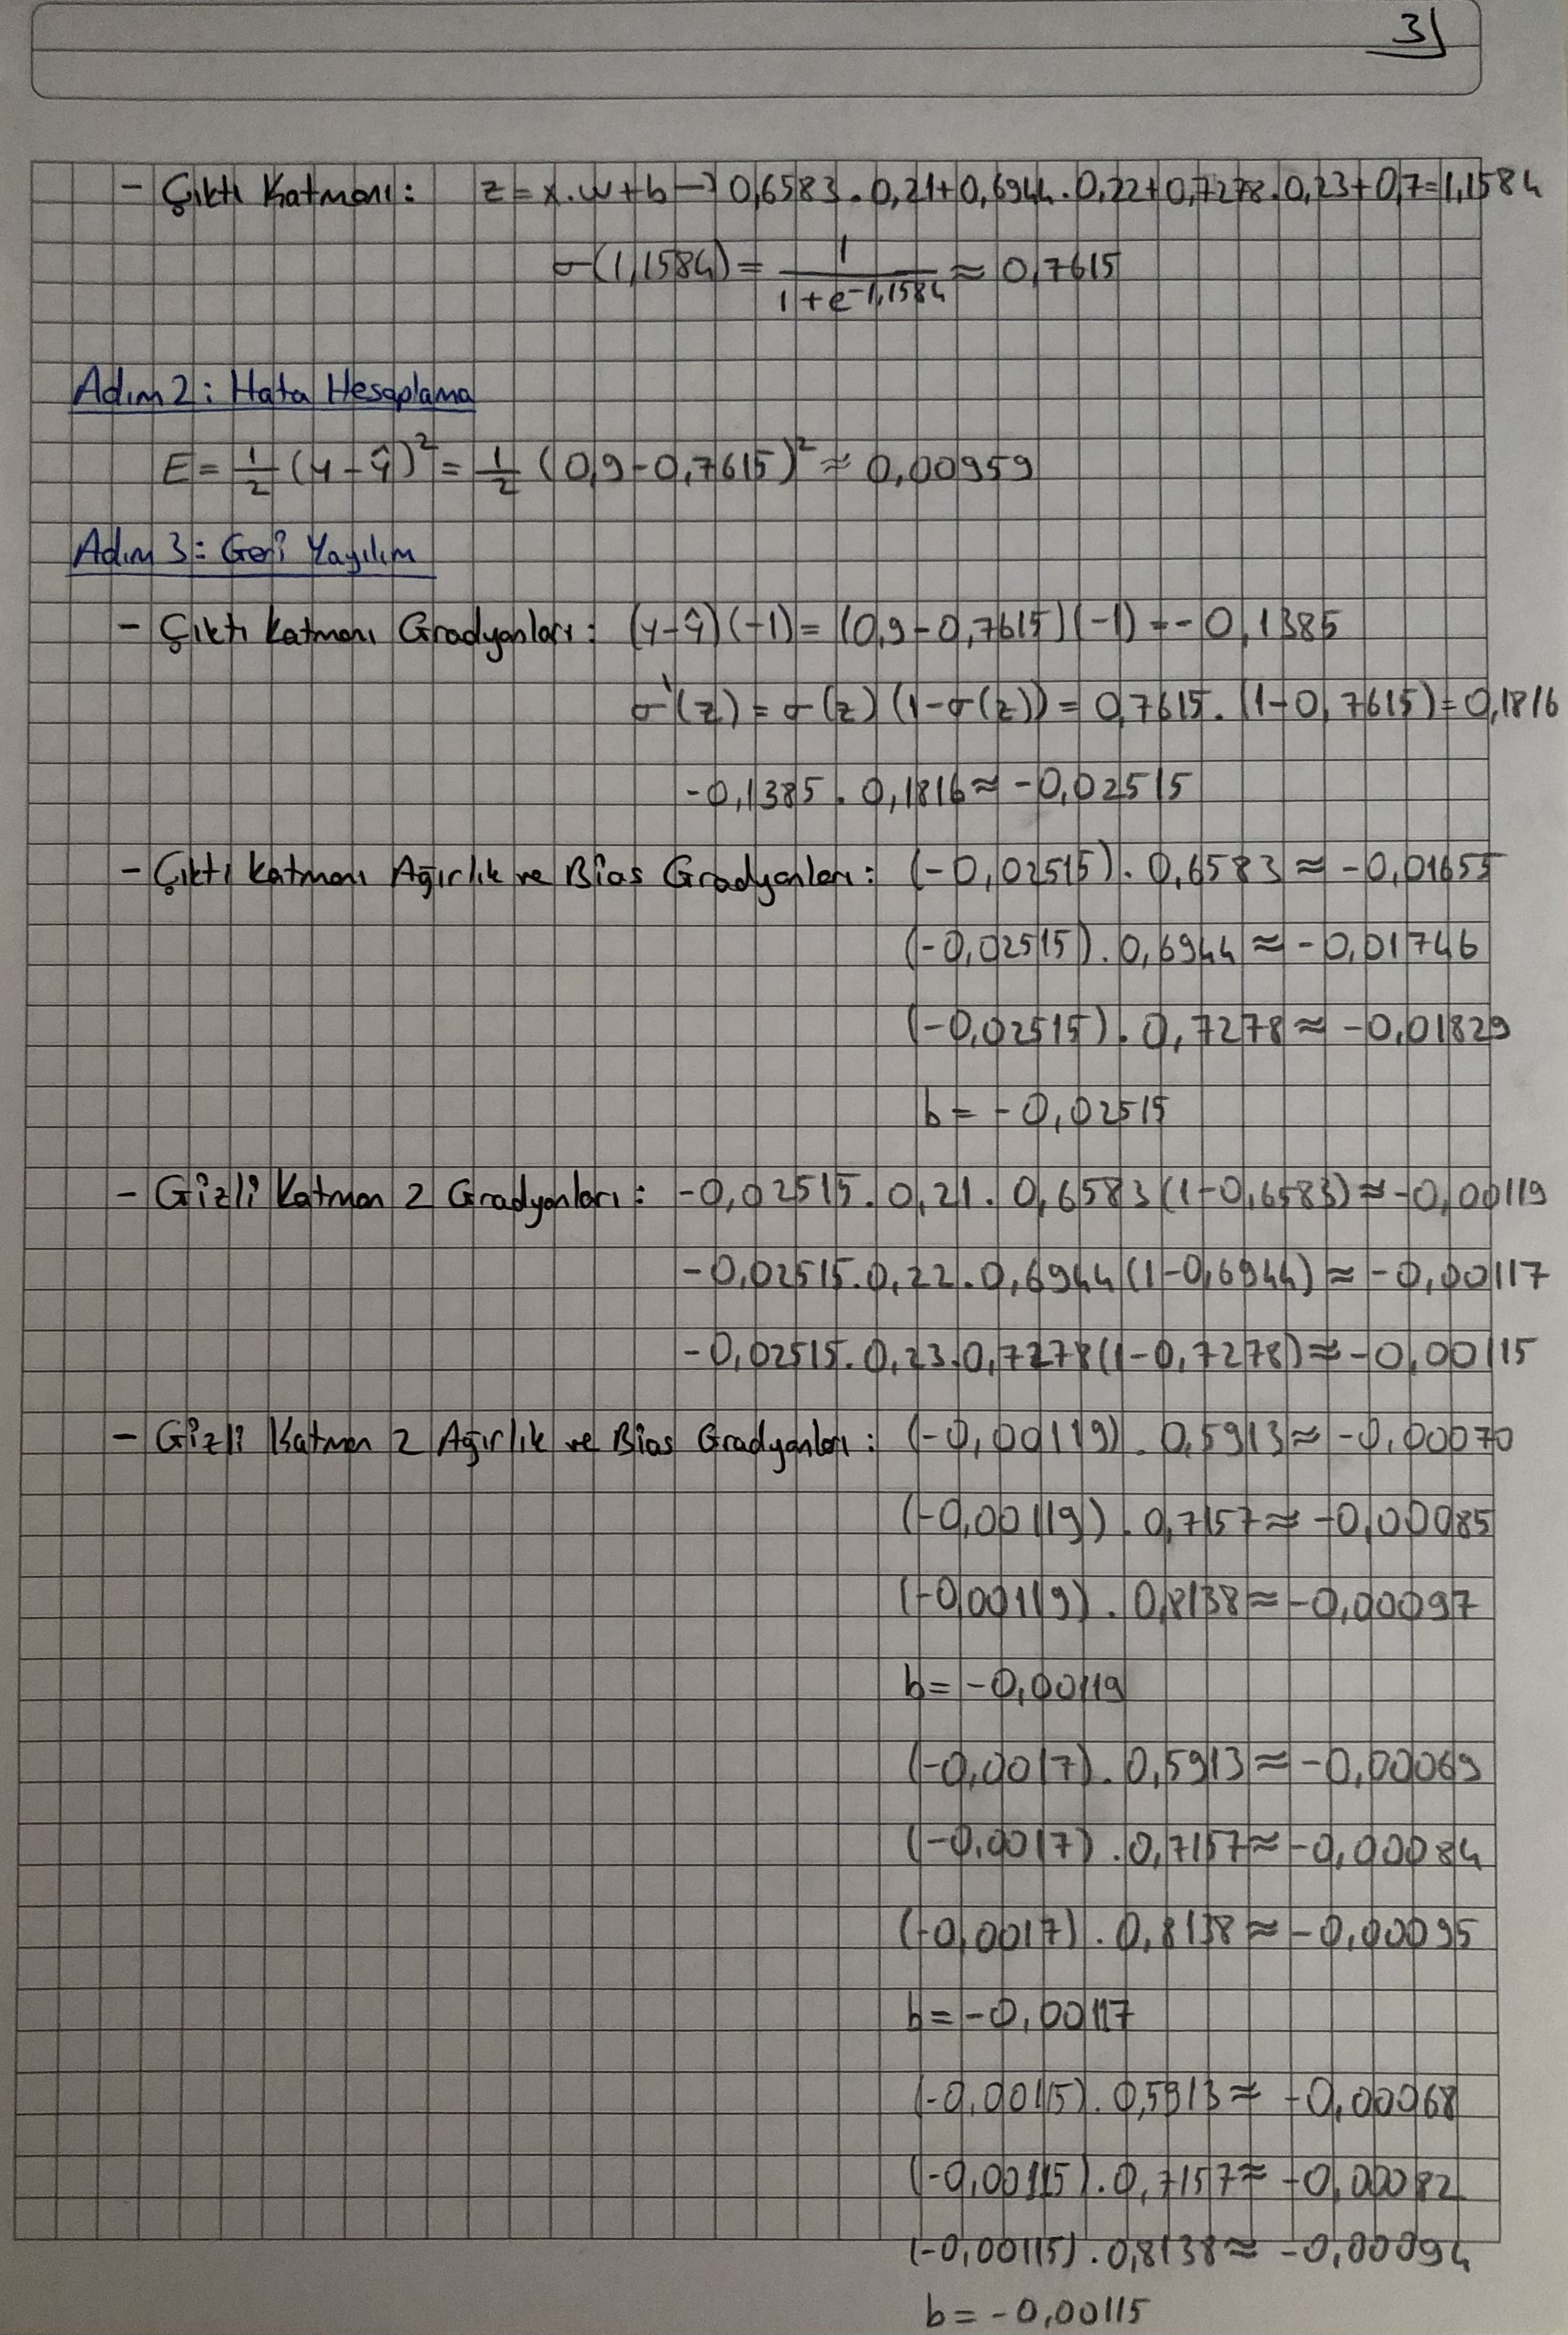 3)
- Çıktı Katmanı: z = x.w+b → 0,6583 . 0,21+0,6944 . 0,22+0,7278 . 0,23+0,7=1,1584
σ(1,1584) = 1 / (1+e^-1,1584) ≈ 0,7615
Adım 2: Hata Hesaplama
E = 1/2 (y-ŷ)² = 1/2 (0,9-0,7615)² ≈ 0,00959
Adım 3: Geri Yayılım
- Çıktı Katmanı Gradyanları: (y-ŷ)(-1) = (0,9-0,7615)(-1) = -0,1385
σ'(z) = σ(z)(1-σ(z)) = 0,7615 . (1-0,7615) = 0,1816
-0,1385 . 0,1816 ≈ -0,02515
- Çıktı Katmanı Ağırlık ve Bias Gradyanları: (-0,02515) . 0,6583 ≈ -0,01655
(-0,02515) . 0,6944 ≈ -0,01746
(-0,02515) . 0,7278 ≈ -0,01829
b = -0,02515
- Gizli Katman 2 Gradyanları: -0,02515 . 0,21 . 0,6583(1-0,6583) ≈ -0,00119
-0,02515 . 0,22 . 0,6944(1-0,6944) ≈ -0,00117
-0,02515 . 0,23 . 0,7278(1-0,7278) ≈ -0,00115
- Gizli Katman 2 Ağırlık ve Bias Gradyanları: (-0,00119) . 0,5913 ≈ -0,00070
(-0,00119) . 0,7157 ≈ -0,00085
(-0,00119) . 0,8138 ≈ -0,00097
b = -0,00119
(-0,0017) . 0,5913 ≈ -0,00069
(-0,0017) . 0,7157 ≈ -0,00084
(-0,0017) . 0,8138 ≈ -0,00095
b = -0,00117
(-0,00115) . 0,5913 ≈ -0,00068
(-0,00115) . 0,7157 ≈ -0,00082
(-0,00115) . 0,8138 ≈ -0,00094
b = -0,00115